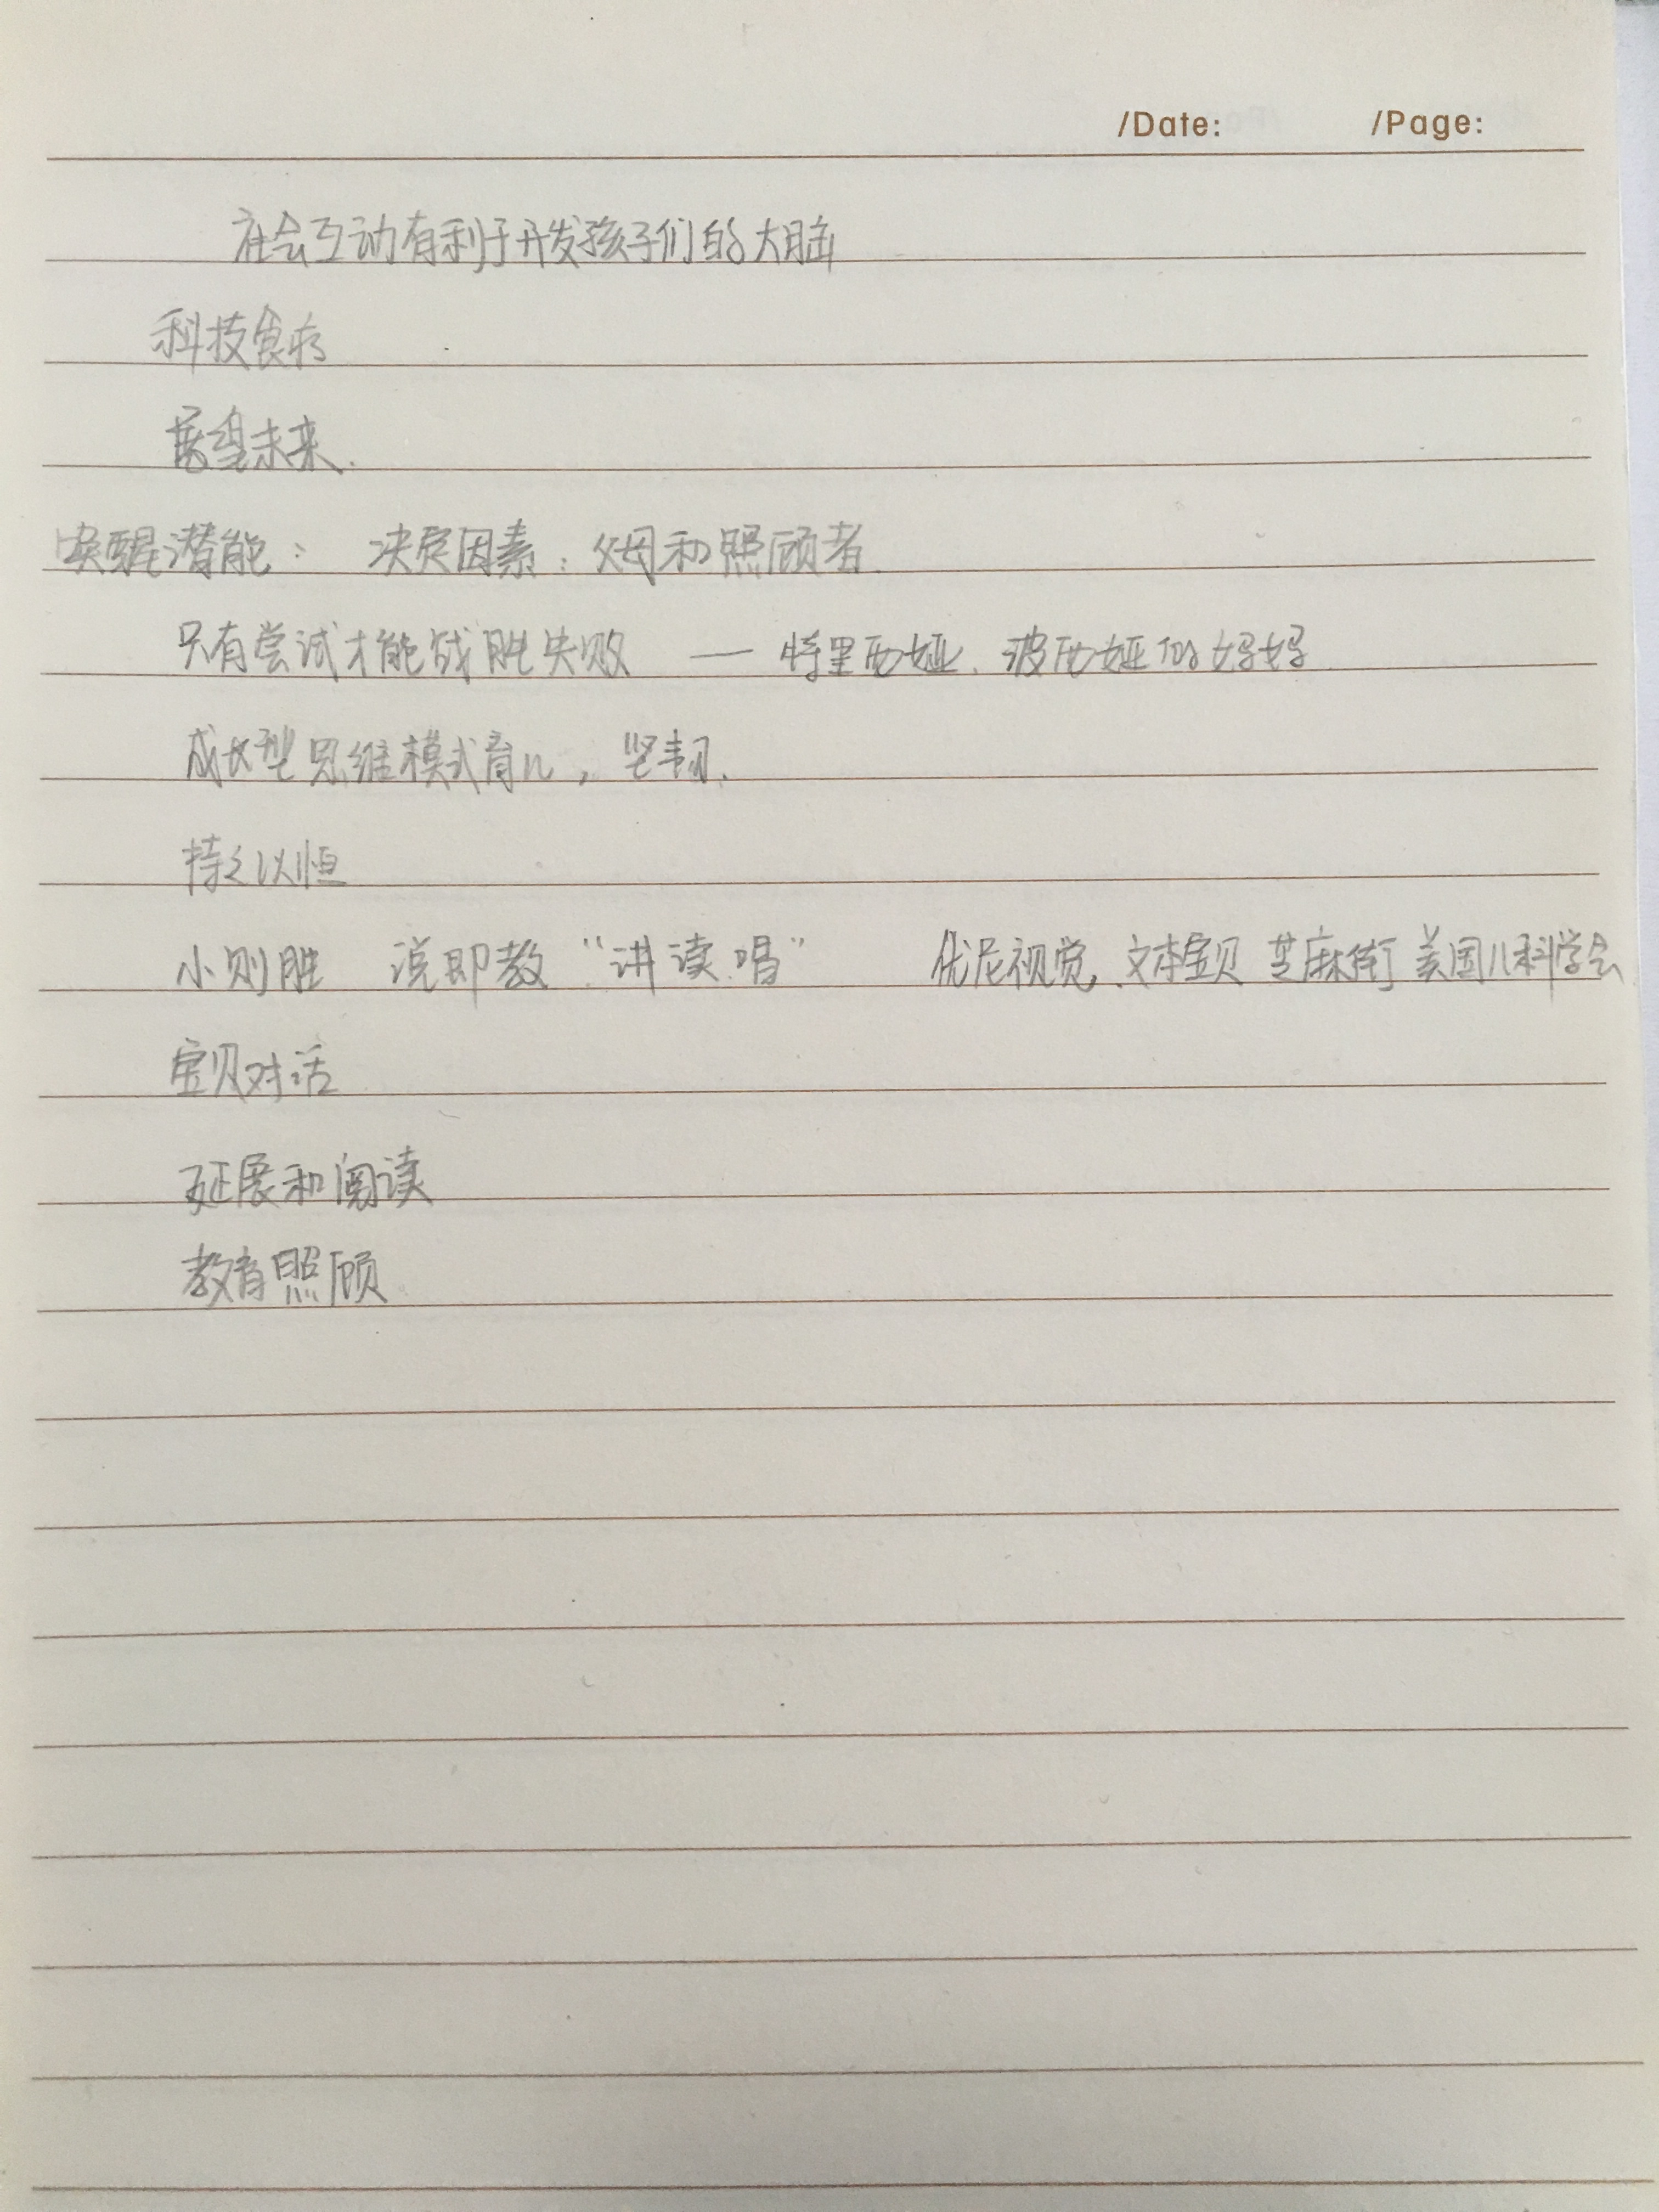 /Date: /Page:
社会互动有利于开发孩子们的大脑
科技食疗
展望未来.
唤醒潜能: 决定因素:父母和照顾者.
只有尝试才能战胜失败 — 特里西娅、波西娅的妈妈
成长型思维模式育儿,坚韧.
持之以恒
小则胜 说即教 “讲读唱” 优尼视觉、文本宝贝 芝麻街 美国儿科学会
宝贝对话
延展和阅读
教育照顾